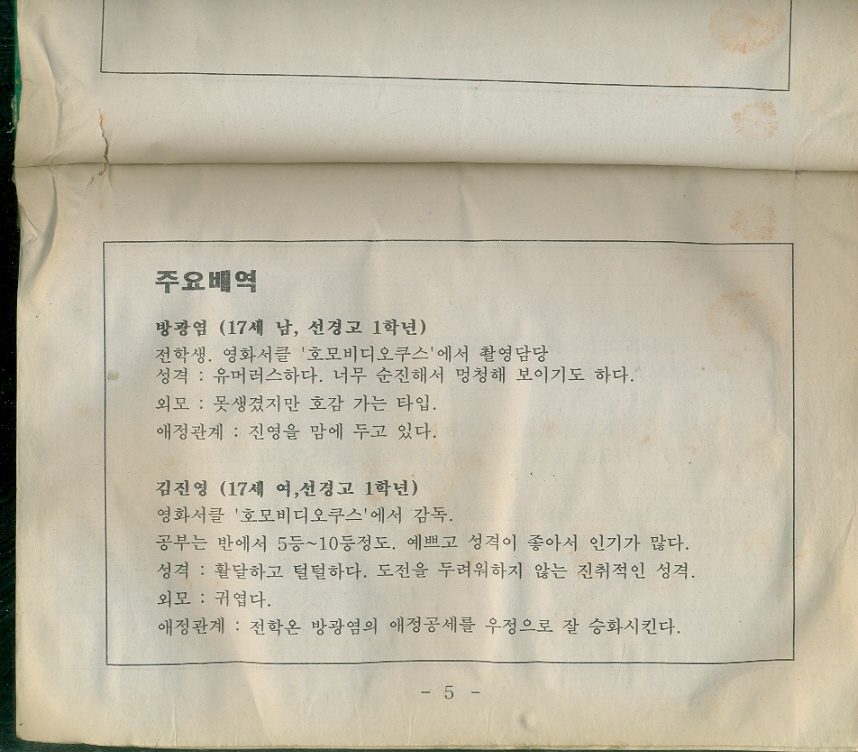 주요배역
방광염 (17세 남, 선경고 1학년)
전학생. 영화서클 '호모비디오쿠스'에서 촬영담당
성격 : 유머러스하다. 너무 순진해서 멍청해 보이기도 하다.
외모 : 못생겼지만 호감 가는 타입.
애정관계 : 진영을 맘에 두고 있다.
김진영 (17세 여,선경고 1학년)
영화서클 '호모비디오쿠스'에서 감독.
공부는 반에서 5등~10등정도. 예쁘고 성격이 좋아서 인기가 많다.
성격 : 활달하고 털털하다. 도전을 두려워하지 않는 진취적인 성격.
외모 : 귀엽다.
애정관계 : 전학온 방광염의 애정공세를 우정으로 잘 승화시킨다.
- 5 -